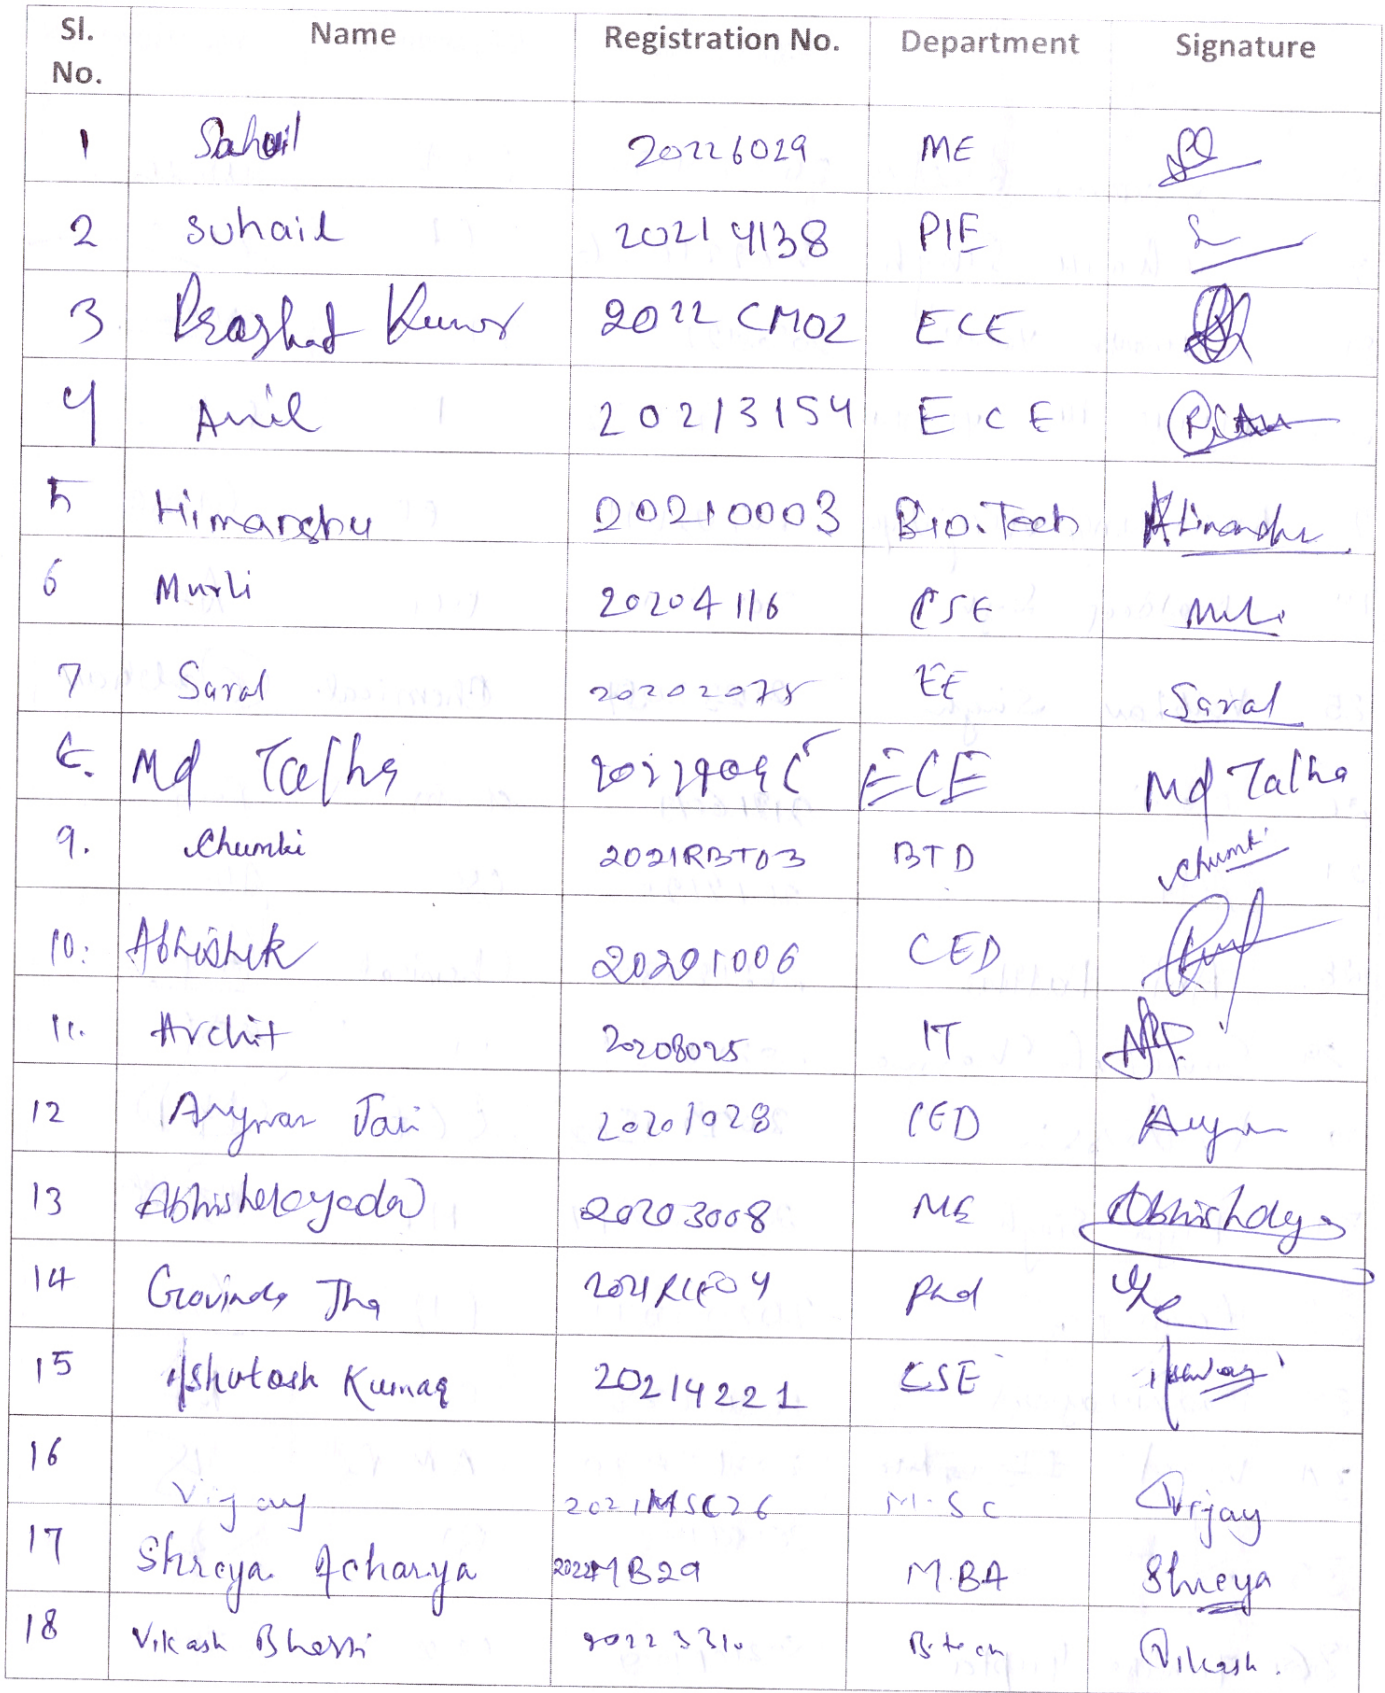 Sl. No. Name Registration No. Department Signature
1 Sahail 20226029 ME
2 Suhail 20214138 PIE
3 Prashat Kumar 2022CM02 ECE
4 Anil 20213154 ECE
5 Himanshu 20210003 Bio.Tech Himanshu
6 Murli 20204116 CSE
7 Saral 20202078 EE Saral
Md Talha ECE Md Talha
9. Chumki 2021RBT03 BTD Chumki
10. Abhishek 20201006 CED
11. Archit 20208025 IT
12 Aryman Jain 20201028 CED
13 Abhishek yadav 20203008 ME
14 Govinda Jha Phd
15 Ashutosh Kumar 20214221 CSE
16 Vijay 2021MSC26 M.Sc Vijay
17 Shreya Acharya 2022MB29 M.BA Shreya
18 Vikash 20223310 B.tech Vikash.